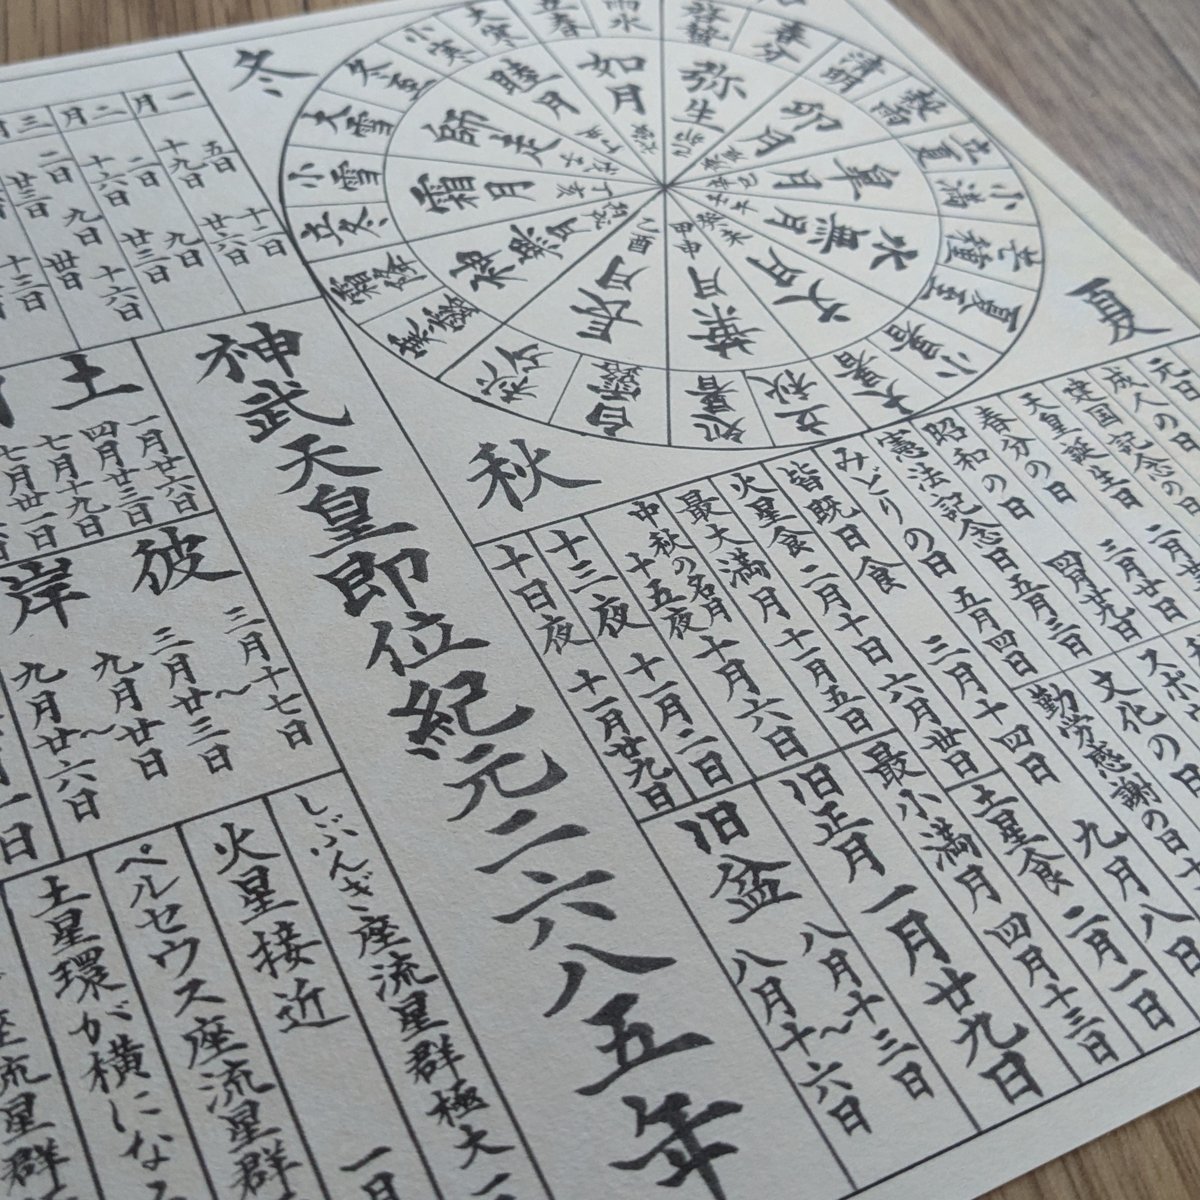 冬
夏
秋
大寒
小寒
冬至
大雪
小雪
立冬
霜降
寒露
秋分
白露
処暑
立秋
大暑
小暑
夏至
芒種
小満
立夏
穀雨
清明
春分
啓蟄
雨水
立春
睦月
如月
弥生
卯月
皐月
水無月
文月
葉月
長月
神無月
霜月
師走
一月
五日
十二日
十九日
廿六日
二月
二日
九日
十六日
廿三日
三月
二日
九日
十六日
卅日
神武天皇即位紀元二六八五年
土
一月廿六日
四月廿三日
七月十九日
七月卅一日
彼岸
三月十七日
〜
三月廿三日
九月廿日
〜
九月廿六日
元日
成人の日
建国記念の日
天皇誕生日
春分の日 三月廿日
昭和の日 四月廿九日
憲法記念日 五月三日
みどりの日 五月四日
文化の日
勤労感謝の日
皆既日食
皆既月食 三月十四日
九月八日
火星食 二月十日 六月卅日
土星食 二月一日
四月十三日
最大満月 十一月五日
最小満月
中秋の名月
十五夜 十月六日
十三夜 十一月二日
十日夜 十一月廿九日
旧正月 一月廿九日
旧盆 八月十三日
〜
八月十六日
しぶんぎ座流星群極大
火星接近
ペルセウス座流星群
土星環が横になる
座流星群